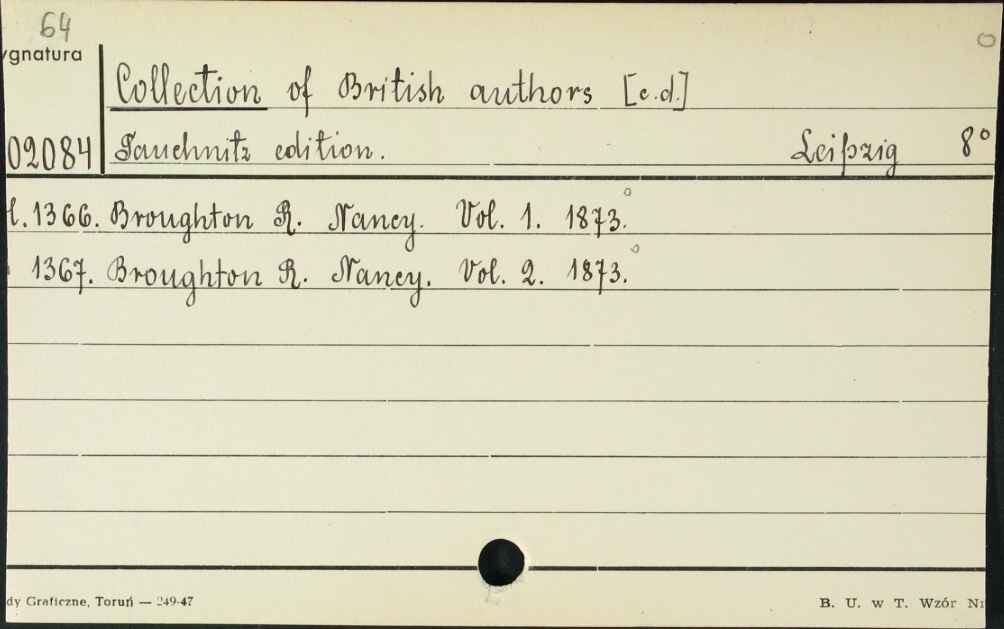 64
ygnatura
Collection of British authors [c.d.]
02084 Tauchnitz edition. Leipzig 8°
l. 1366. Broughton R. Nancy. Vol. 1. 1873.°
1367. Broughton R. Nancy. Vol. 2. 1873.°
dy Graficzne, Toruń — 249-47
B. U. w T. Wzór Nr